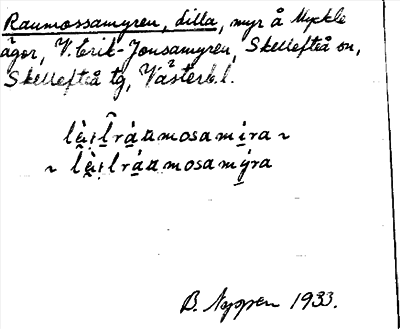 Raumossamyren, dilla, myr å Myckle
ägor, V. Erik-Jonsamyren, Skellefteå sn,
Skellefteå tg, Västerb. l.
mosamira ~
~ mosamýra
B. Nyppen 1933.